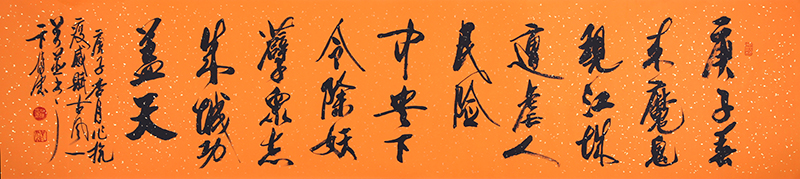 庚子春
来魔鬼
现江城
遭虐人
民险
中央下
令除妖
孽众志
成城功
盖天
庚子杏月作抗
疫感赋古风一
首並書